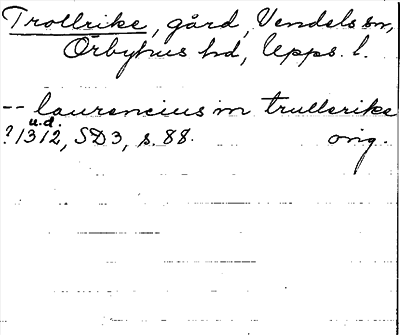 Trollrike, gård, Vendels sn,
Örbyhus hd, Upps. l.
-- laurencius in trullerike
u.d.
? 1312, SD3, s. 88. orig.